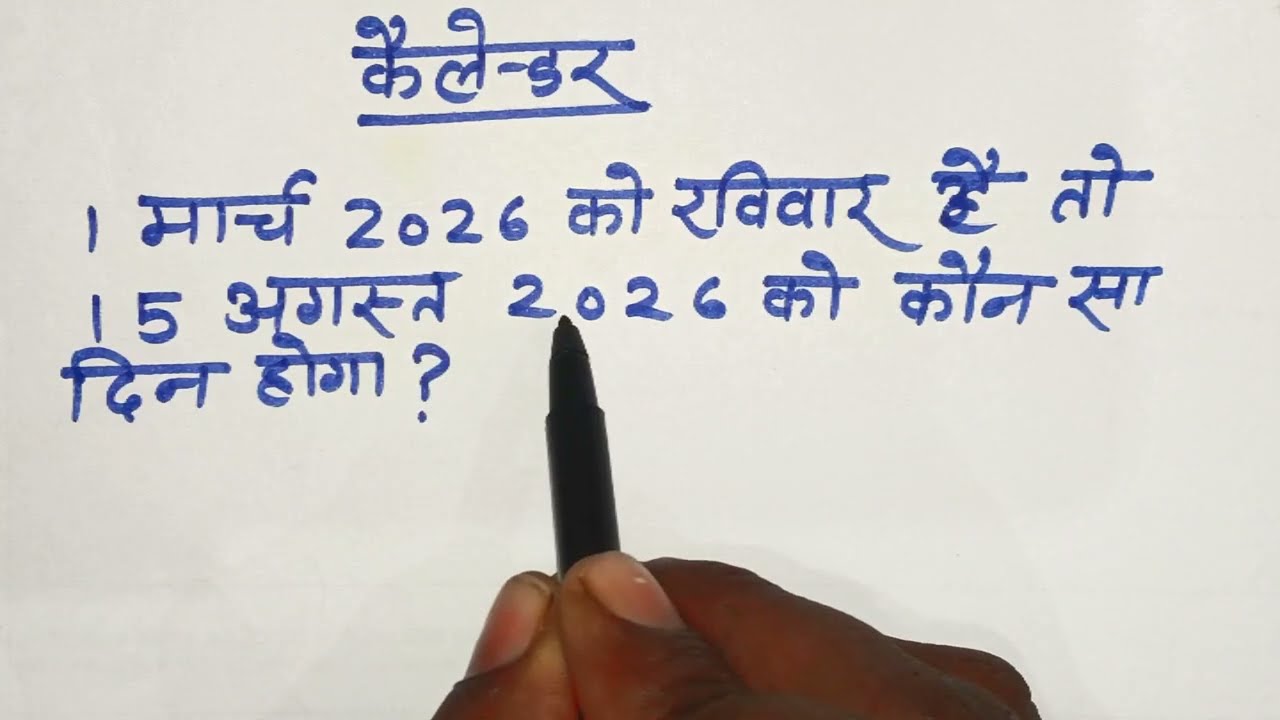 कैलेन्डर
1 मार्च 2026 को रविवार है तो
15 अगस्त 2026 को कौन सा
दिन होगा?